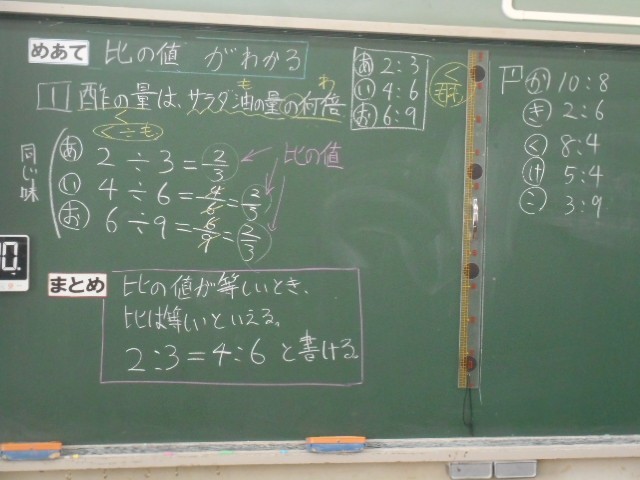 めあて 比の値 がわかる
1 酢の量は、サラダ油の量の何倍
も わ
く
く÷も
同じ味
あ 2÷3=2/3
い 4÷6=4/6=2/3
お 6÷9=6/9=2/3
比の値
まとめ
比の値が等しいとき、
比は等しいといえる。
2:3=4:6 と書ける。
あ 2:3
い 4:6
お 6:9
か 10:8
き 2:6
く 8:4
け 5:4
こ 3:9
0.